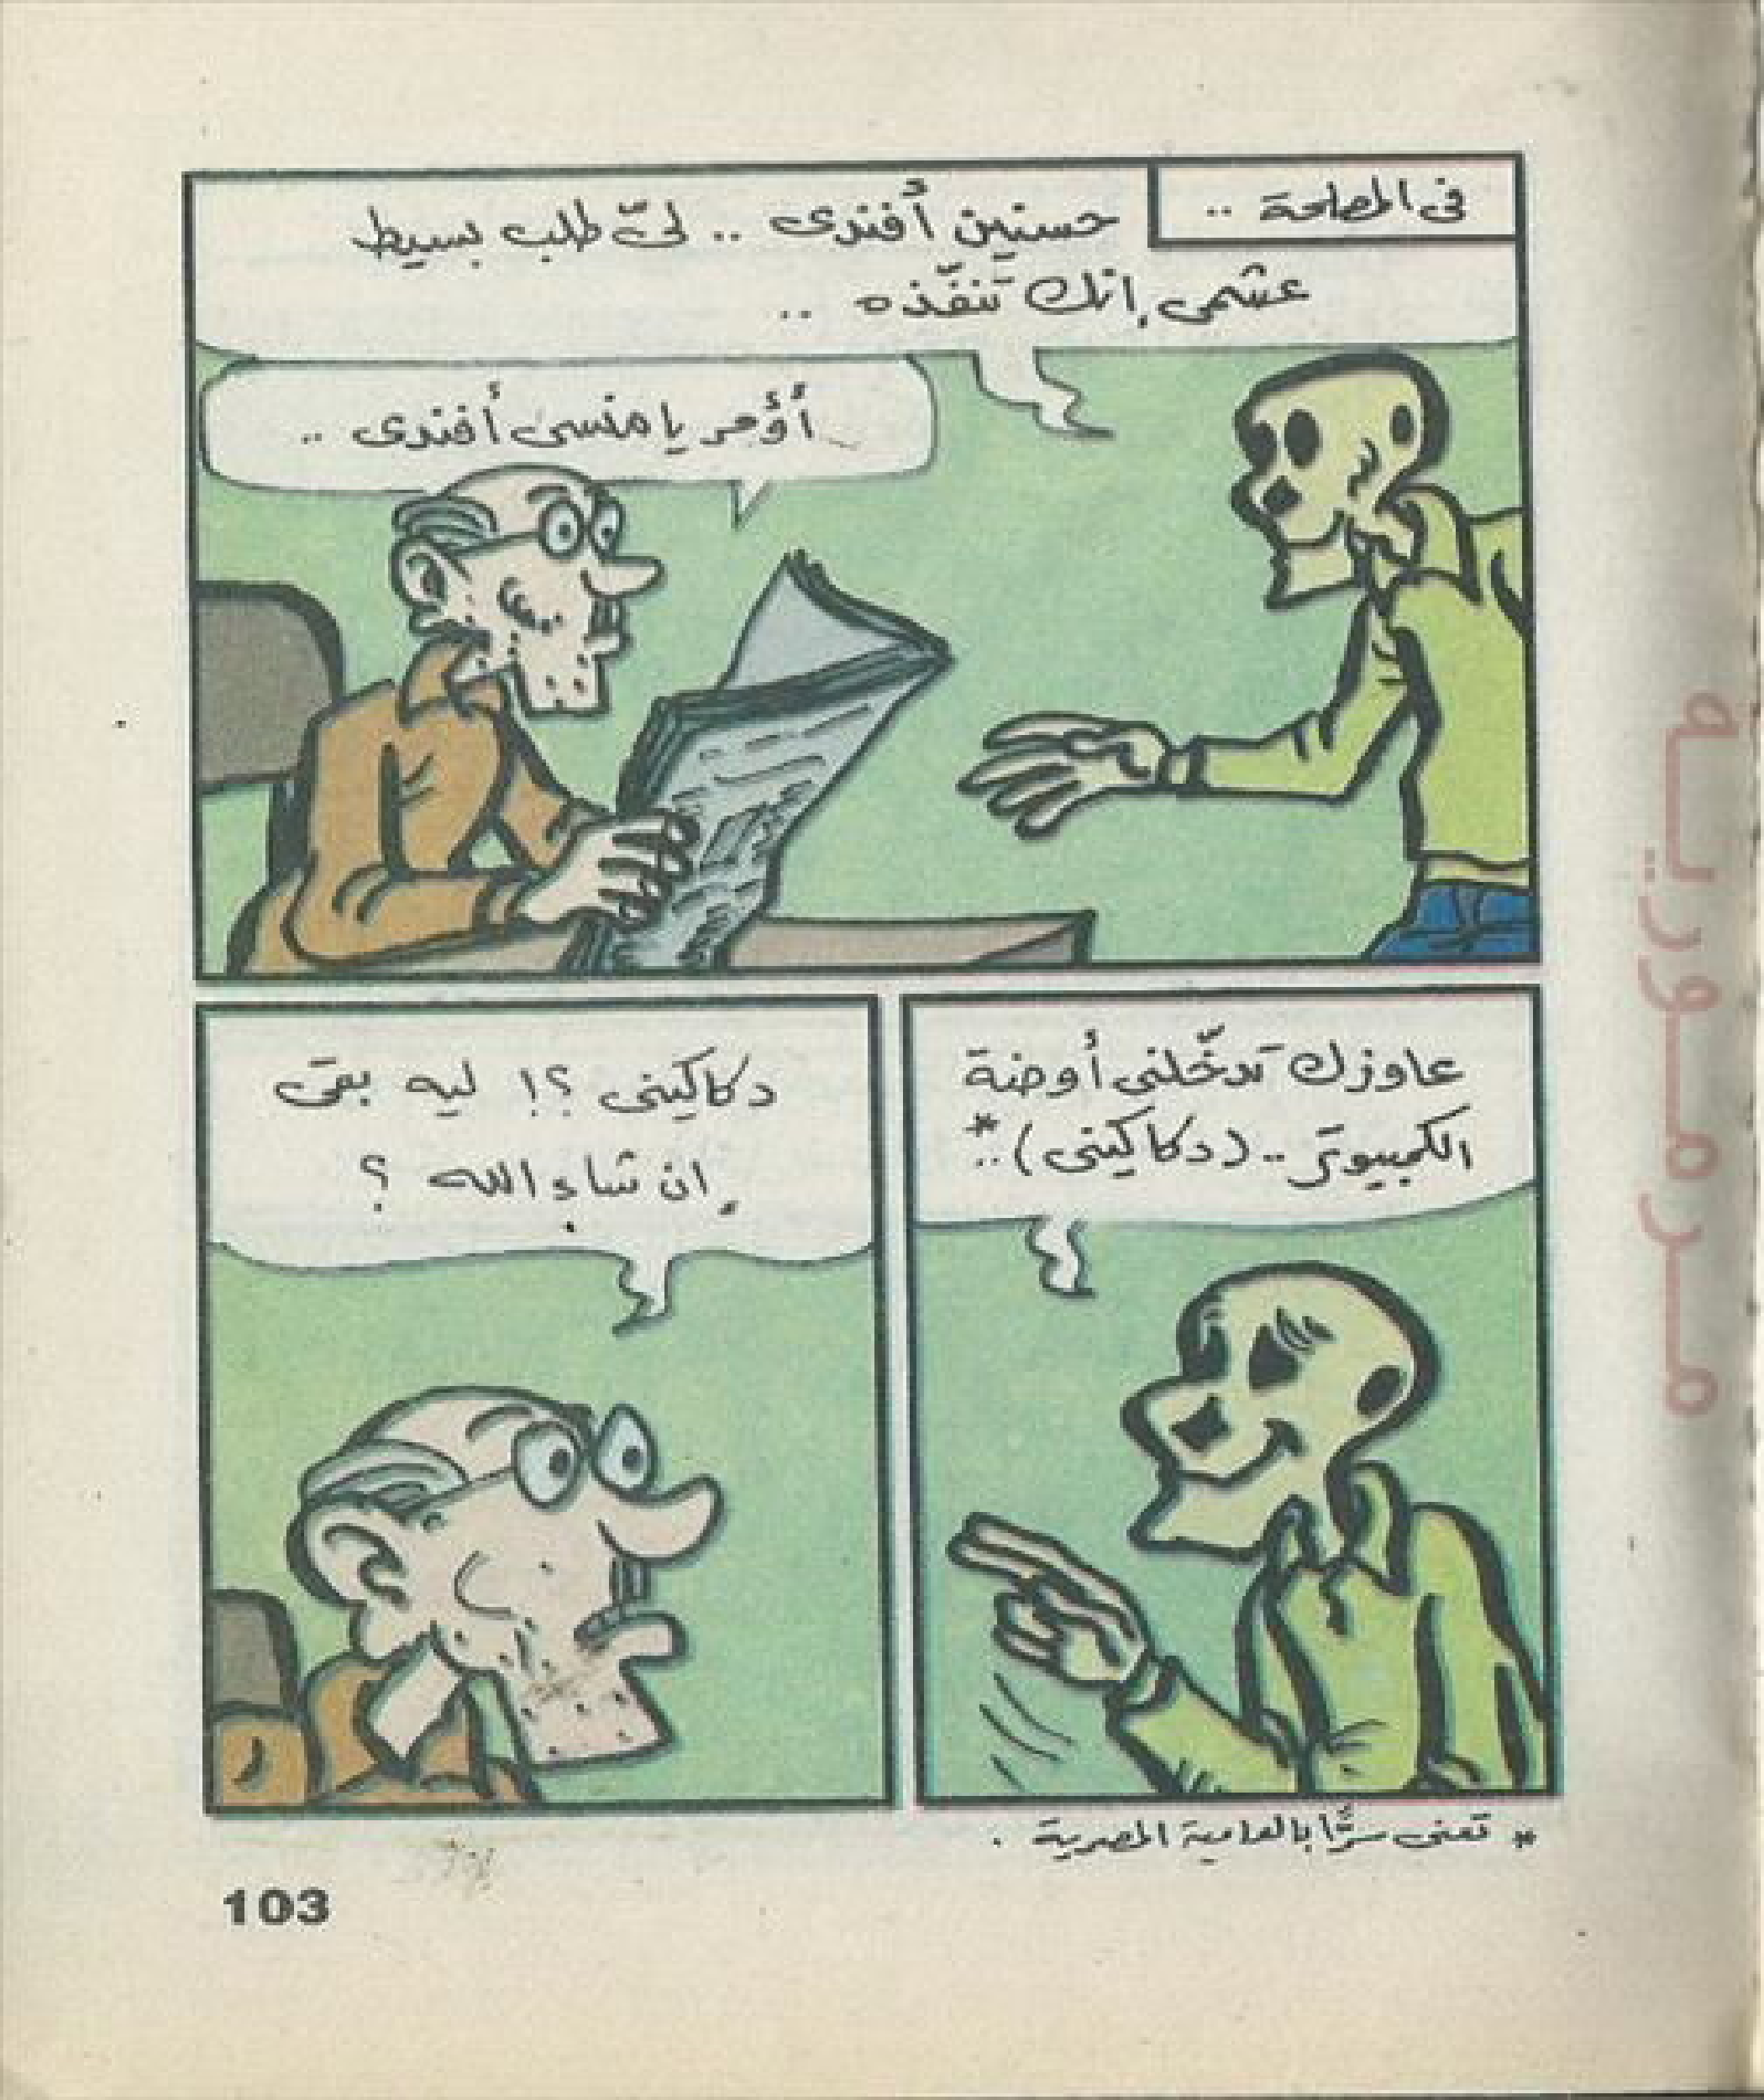 فى المصلحة ..
حسنين أفندى .. لىّ طلب بسيط
عشمى إنك تنفّذه ..
أؤمر يا منسى أفندى ..
عاوزك تدخّلنى أوضة
الكمبيوتر .. (دكاكينى)* ..
دكاكينى ؟! ليه بقى
إن شاء الله ؟
* تعنى سرًّا بالعامية المصرية .
103
مرمورية